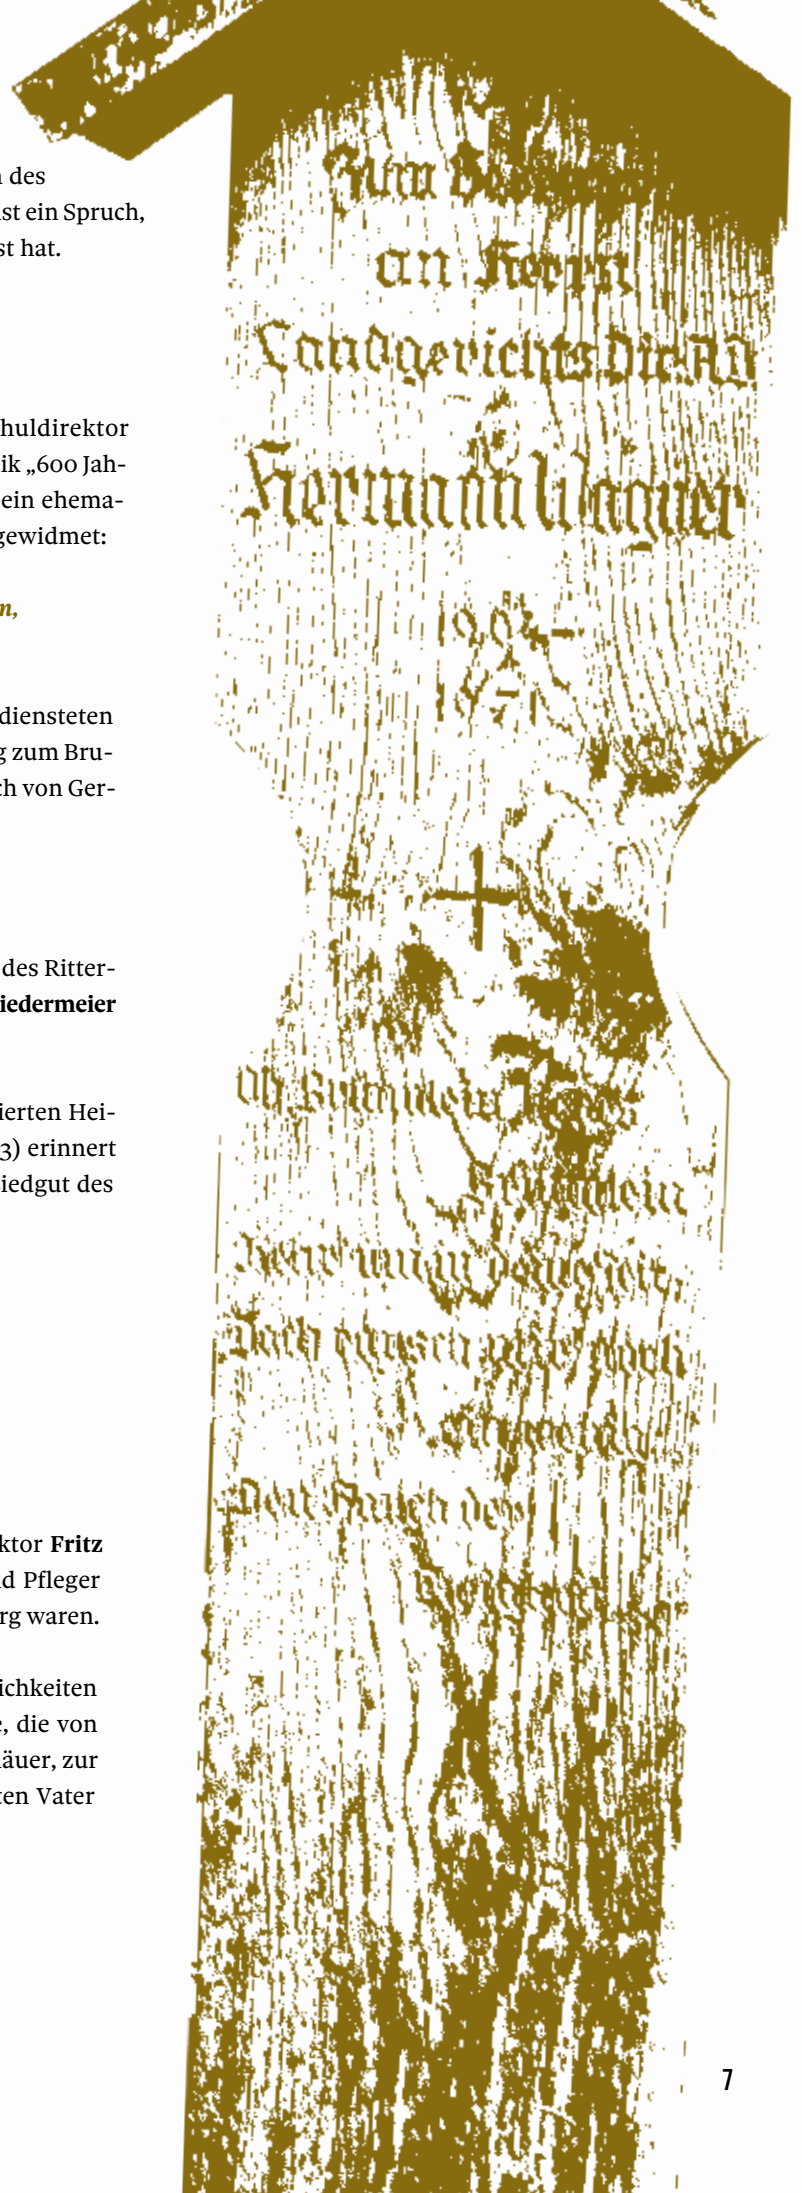 des
st ein Spruch,
st hat.
huldirektor
ik „600 Jah-
ein ehema-
gewidmet:
n,
diensteten
g zum Bru-
ch von Ger-
des Ritter-
iedermeier
ierten Hei-
3) erinnert
iedgut des
ktor Fritz
d Pfleger
rg waren.
ichkeiten
e, die von
äuer, zur
ten Vater
Zum
an Herrn
Landgerichts Dir. A.D.
Hermann Wagner
1904–
1971
Ob Brünnlein
Brünnlein
Doch noch
Den Hauch der
7